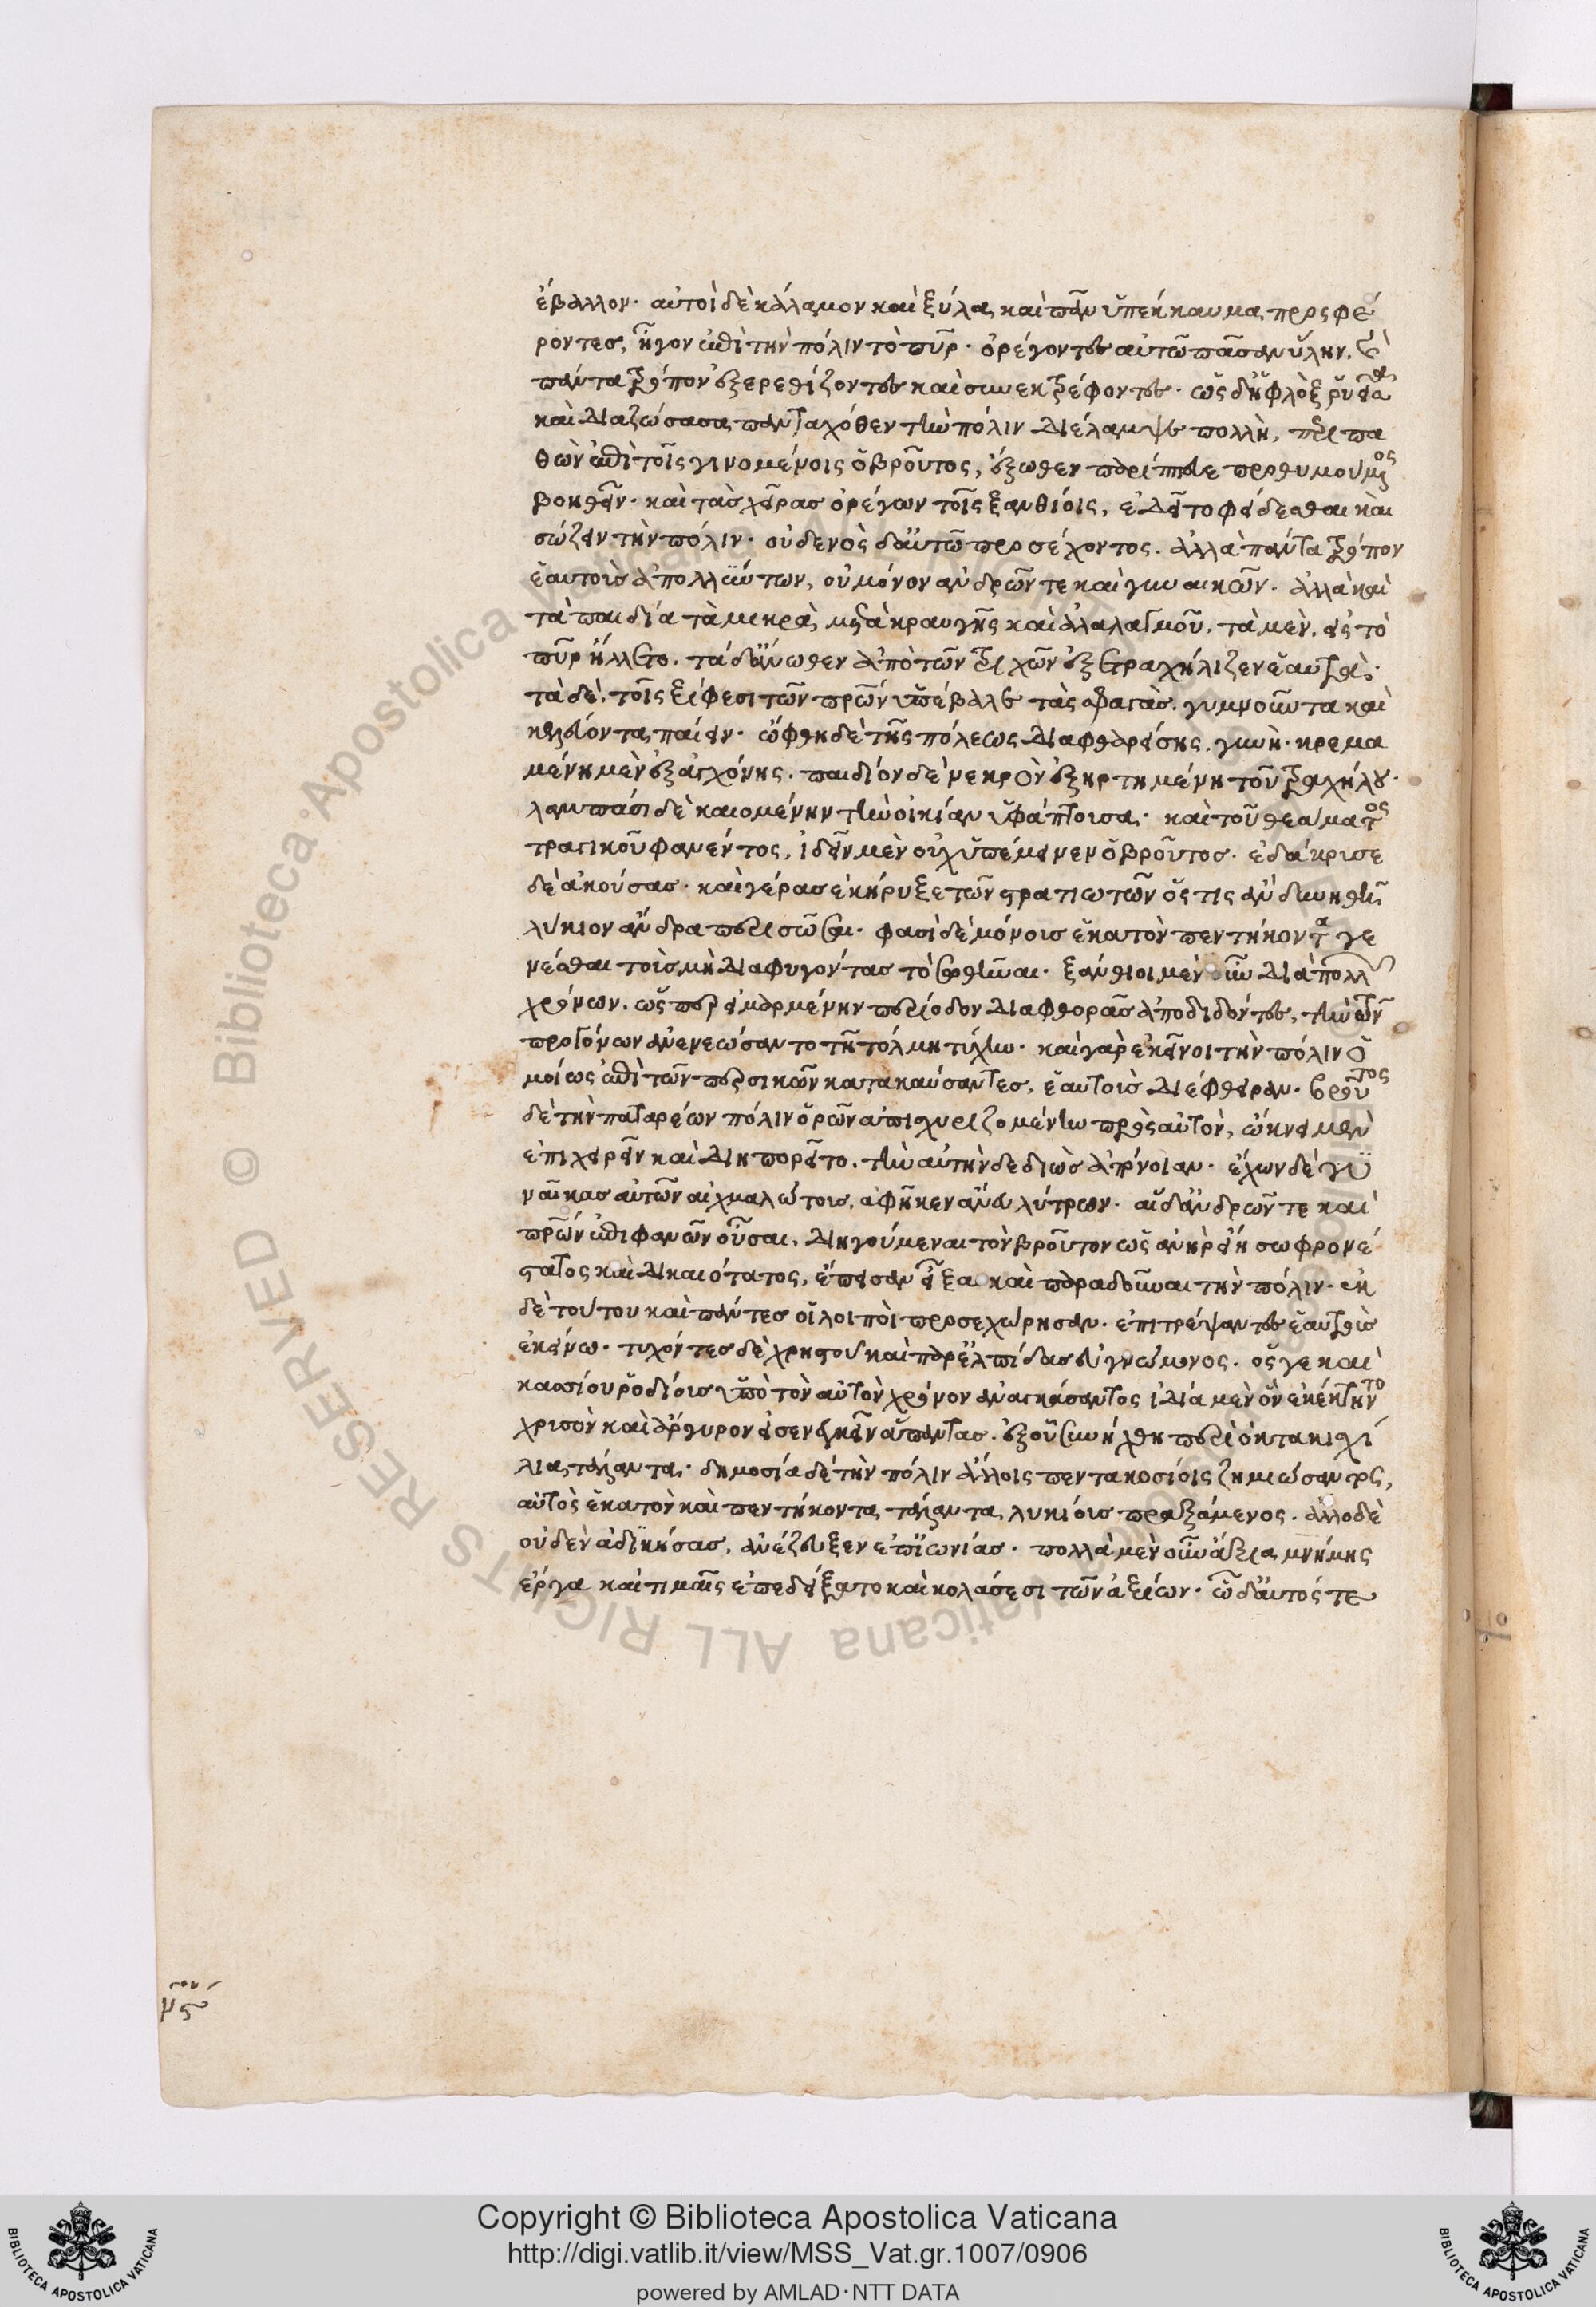 ἔβαλλον· αὐτοὶ δὲ κάλαμον καὶ ξύλα καὶ πᾶν ὑπέκκαυμα προσφέ
ροντες, ἦγον ἐπὶ τὴν πόλιν τὸ πῦρ· ὀρέγοντες αὐτῶ πᾶσαν ὕλην, καὶ
πάντα τρόπον ἐξερεθίζοντες καὶ συνεκτρέφοντες· ὡς δ' ἡ φλὸξ ῥυεῖσα
καὶ διαζώσασα πανταχόθεν τὴν πόλιν διέλαμψε πολλὴ, περιπα
θῶν ἐπὶ τοῖς γινομένοις ὁ βροῦτος, ἔξωθεν παρίππευε προθυμούμενος
βοηθεῖν· καὶ τὰς χεῖρας ὀρέγων τοῖς ξανθίοις, ἐδεῖτο φείδεσθαι καὶ
σώζειν τὴν πόλιν· οὐδενὸς δ' αὐτῶ προσέχοντος. ἀλλὰ πάντα τρόπον
ἑαυτοὺς ἀπολλύντων, οὐ μόνον ἀνδρῶν τε καὶ γυναικῶν· ἀλλὰ καὶ
τὰ παιδία τὰ μικρὰ, μετὰ κραυγῆς καὶ ἀλαλαγμοῦ, τὰ μὲν, εἰς τὸ
πῦρ ἥλλετο. τὰ δ' ἄνωθεν ἀπὸ τῶν τειχῶν ἐξετραχήλιζεν ἑαυτά·
τὰ δὲ, τοῖς ξίφεσι τῶν πρῶν ὑπέβαλε τὰς σφαγὰς, γυμνοῦντα καὶ
κελεύοντα παίειν· ὤφθη δὲ τῆς πόλεως διαφθαρείσης, γυνὴ· κρεμα
μένη μὲν ἐξ ἀγχόνης. παιδίον δὲ νεκρὸν ἐξηρτημένη τοῦ τραχήλου·
λαμπάσι δὲ καιομένην τὴν οἰκίαν ὑφάπτουσα· καὶ τοῦ θεάματος
τραγικοῦ φανέντος, ἰδεῖν μὲν οὐχ ὑπέμεινεν ὁ βροῦτος. ἐδάκρυσε
δὲ ἀκούσας· καὶ γέρας ἐκήρυξε τῶν στρατιωτῶν ὅς τις ἂν δυνηθῆ
λύκιον ἄνδρα περισῶσαι· φασὶ δὲ μόνους ἑκατὸν πεντήκοντα γε
νέσθαι τοὺς μὴ διαφυγόντας τὸ σωθῆναι· ξάνθιοι μὲν οὖν διὰ πολλῶν
χρόνων, ὥσπερ εἱμαρμένην περίοδον διαφθορᾶς ἀποδιδόντες, τὴν τῶν
προγόνων ἀνενεώσαντο τῆ τόλμη τύχην· καὶ γὰρ ἐκεῖνοι τὴν πόλιν ὁ
μοίως ἐπὶ τῶν περσικῶν κατακαύσαντες, ἑαυτοὺς διέφθειραν· βροῦτος
δὲ τὴν παταρέων πόλιν ὁρῶν ἀπισχυριζομένην πρὸς αὐτὸν, ὤκνει μὲν
ἐπιχειρεῖν καὶ διηπορεῖτο, τὴν αὐτὴν δεδιὼς ἀπόνοιαν· ἔχων δὲ γυ
ναῖκας αὐτῶν αἰχμαλώτους, ἀφῆκεν ἄνευ λύτρων· αἱ δ' ἀνδρῶν τε καὶ
πρῶν ἐπιφανῶν οὖσαι, διηγούμεναι τὸν βροῦτον ὡς ἀνὴρ εἴη σωφρονέ
στατος καὶ δικαιότατος, ἔπεισαν εἶξαι καὶ παραδοῦναι τὴν πόλιν· ἐκ
δὲ τούτου καὶ πάντες οἱ λοιποὶ προσεχώρησαν· ἐπιτρέψαντες ἑαυτοὺς
ἐκείνω· τυχόντες δὲ χρηστοῦ καὶ παρ' ἐλπίδας εὐγνώμονος. ὅς γε καὶ
κασίου ῥοδίους ὑπὸ τὸν αὐτὸν χρόνον ἀναγκάσαντος ἰδία μὲν ὃν ἐκέκτηντο
χρυσὸν καὶ ἄργυρον εἰσενεγκεῖν ἅπαντας. ἐξ οὗ συνήχθη περὶ ὀκτακισχί
λια τάλαντα· δημοσία δὲ τὴν πόλιν ἄλλοις πεντακοσίοις ζημιώσαντος,
αὐτὸς ἑκατὸν καὶ πεντήκοντα τάλαντα λυκίους πραξάμενος. ἄλλο δὲ
οὐδὲν ἀδικήσας, ἀνέζευξεν ἐπ' ἰωνίας· πολλὰ μὲν οὖν ἄξια μνήμης
ἔργα καὶ τιμαῖς ἐπεδείξατο καὶ κολάσεσι τῶν ἀξίων· ὧ δ' αὐτός τε
Copyright © Biblioteca Apostolica Vaticana
http://digi.vatlib.it/view/MSS_Vat.gr.1007/0906
powered by AMLAD·NTT DATA